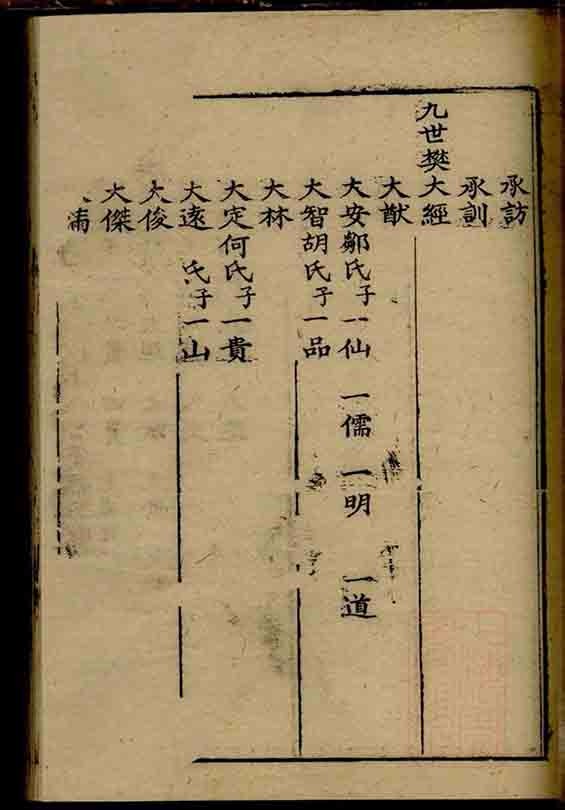 承訪
承訓
九世樊大經
大猷
大安鄒氏子一仙 一儒 一明 一道
大智胡氏子一品
大林
大定何氏子一貴
大遂 氏子一山
大俊
大傑